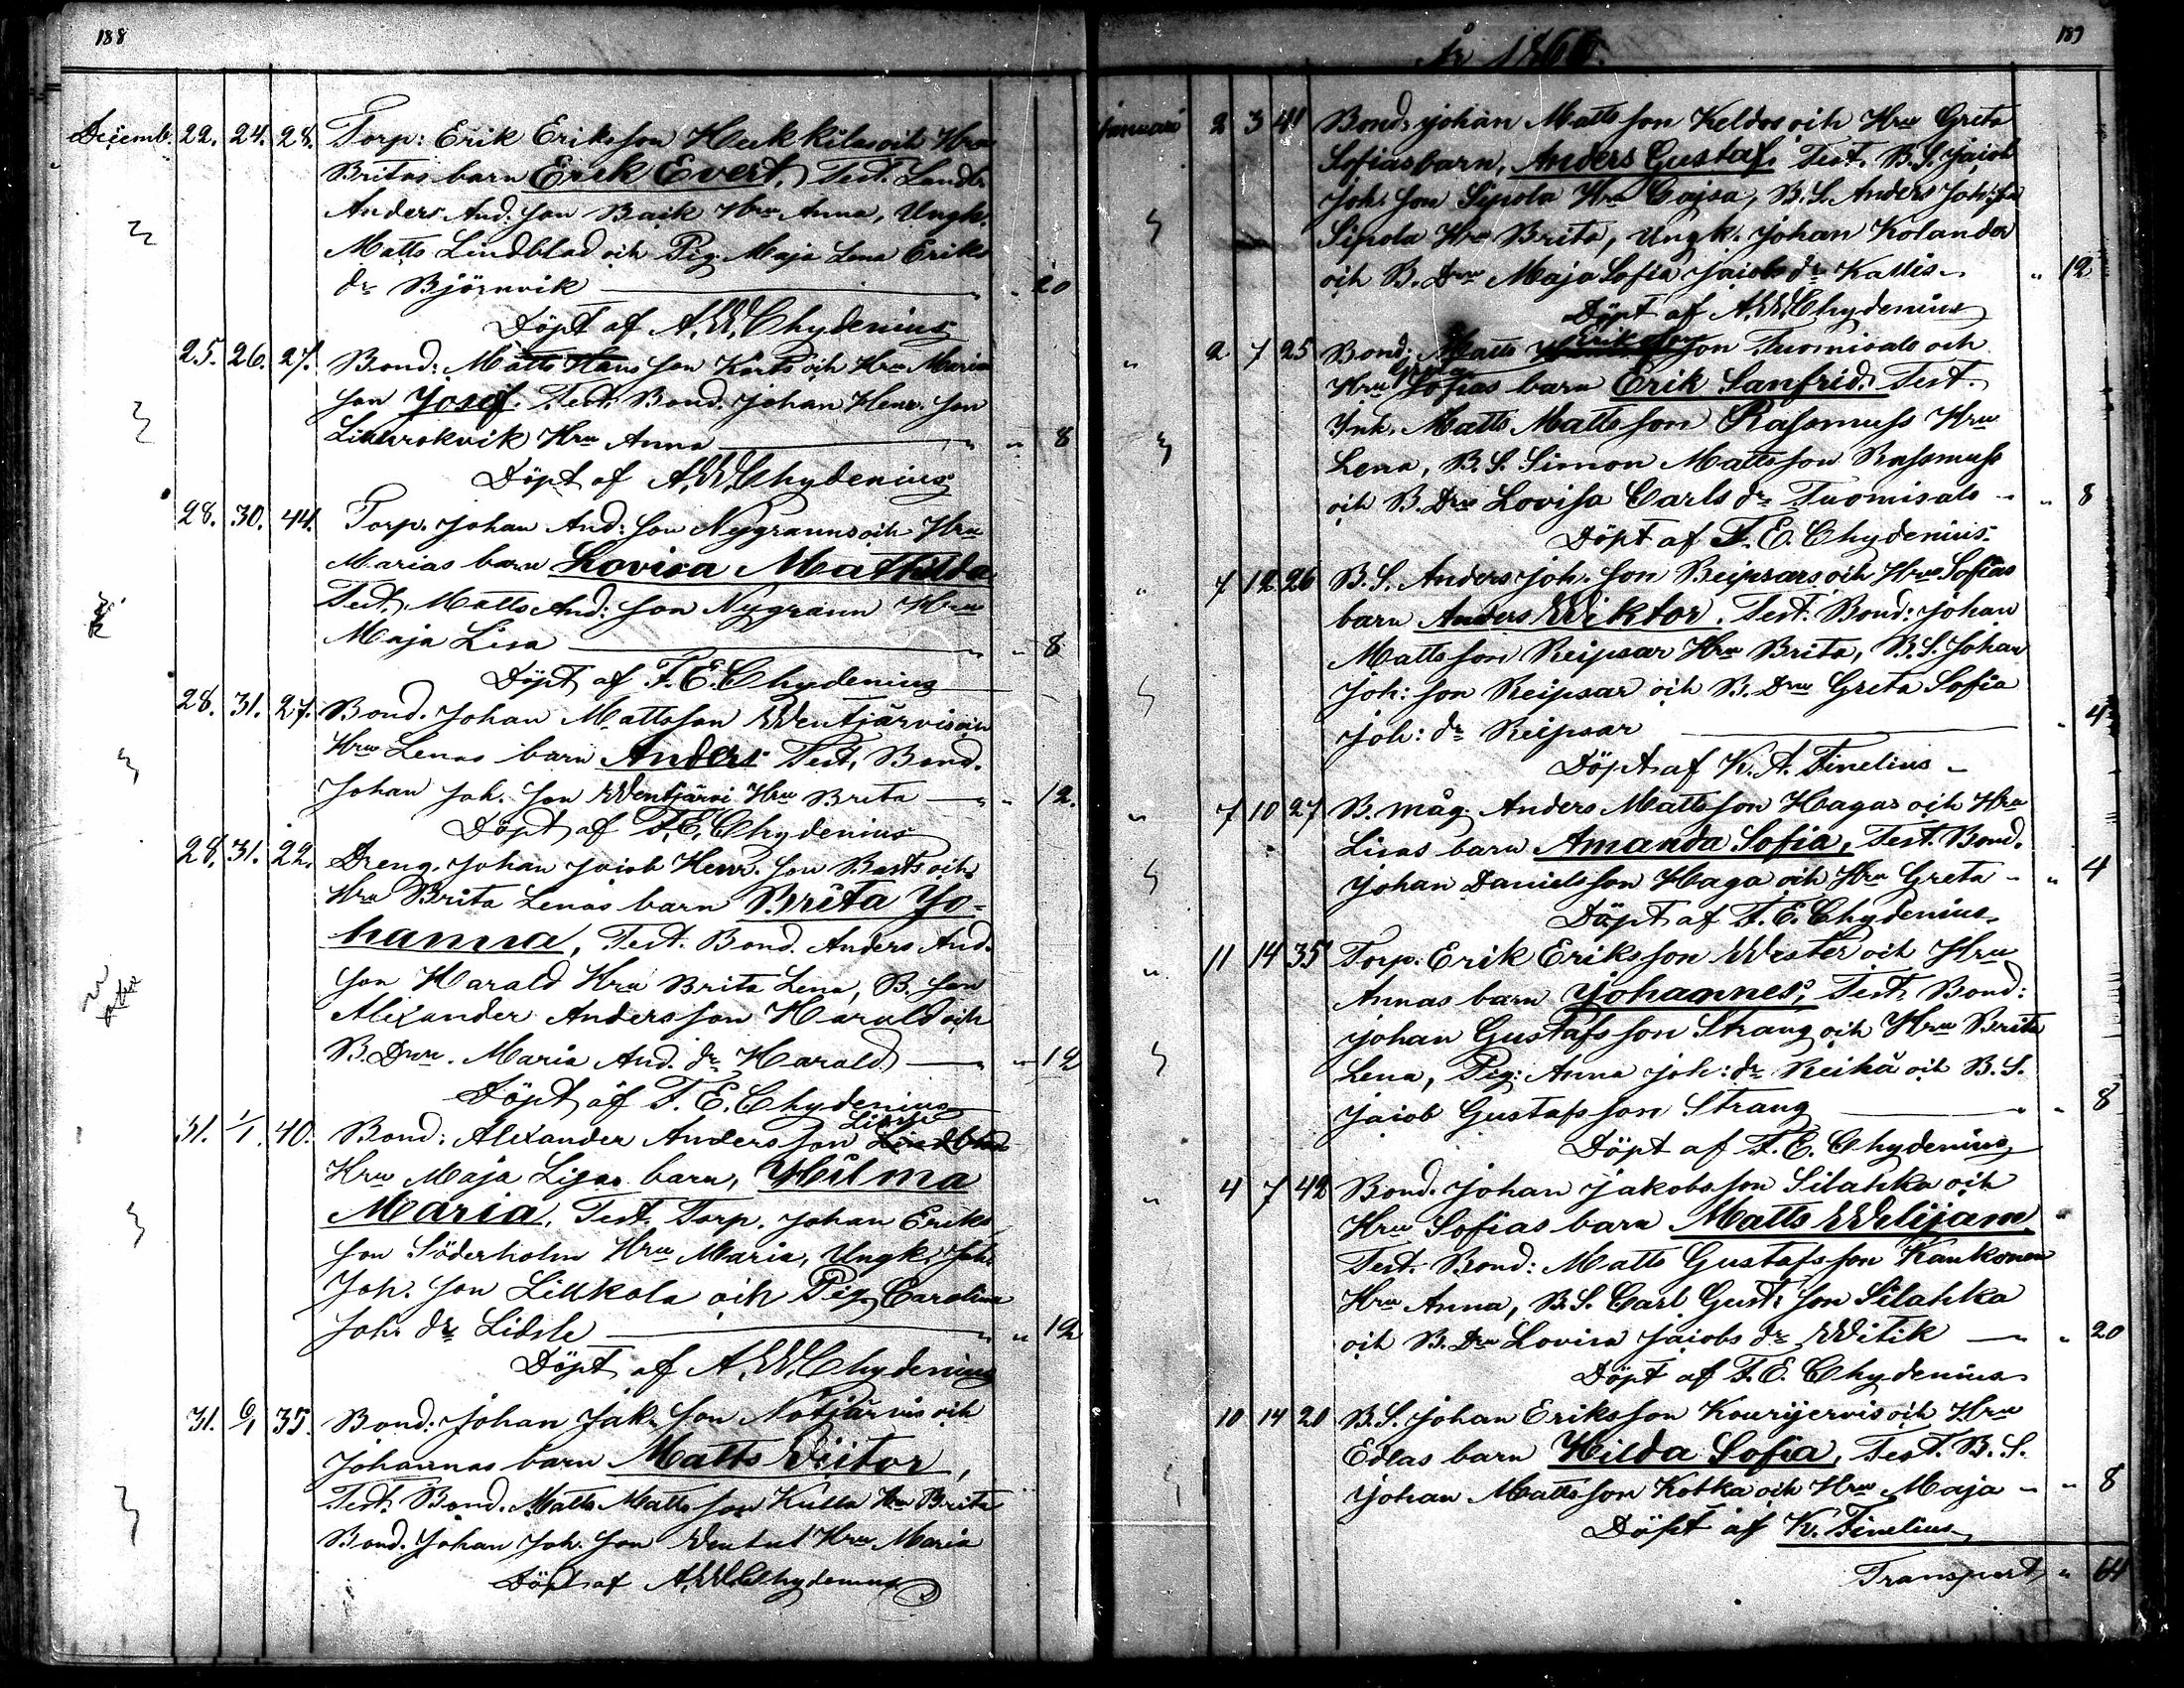 188
Decemb. 22. 24. 28. Torp: Erik Eriksson Heikkilas och Hru
Britas barn Erik Evert, Test. Landb.
Anders And: son Baik Hru Anna, Ungk.
Matts Lindblad och Pig. Maja Lena Eriks
dr Björnvik — " 20
Döpt af A.W. Chydenius
25. 26. 27. Bond: Matts Hans son Karts och Hru Maria
son Josef. Test. Bond. Johan Henr. son
Hru Anna — " " 8
Döpt af A.W. Chydenius
28. 30. 44. Torp. Johan And: son Nygranns och Hru
Marias barn Lovisa Mathilda
Test. Matts And: son Nygrann Hru
Maja Lisa — " " 8
Döpt af F.E. Chydenius
28. 31. 27. Bond. Johan Mattsson Wentjärvis och
Hru Lenas barn Anders Test, Bond.
Johan Joh. son Wentjärvi Hru Brita — " " 12.
Döpt af F.E. Chydenius
28. 31. 22. Dreng. Johan Jacob Henr. son Basts och
Hru Brita Lenas barn Brita Jo-
hanna, Test. Bond. Anders And.
son Harald Hru Brita Lena, B. son
Alexander Andersson Harald och
B. Drn. Maria And. dr Harald — " " 12
Döpt af F. E. Chydenius
31. 1/1. 40. Bond: Alexander Andersson
Hru Maja Lisas barn, Hilma
Maria, Test. Torp. Johan Eriks
son Söderholm Hru Maria, Ungk. Joh.
Joh. son Likkola och Pig. Carolina
Joh. dr Lidsle — " " 12
Döpt af A.W. Chydenius
31. 6/1 35. Bond: Johan Jak. son Nötjärvis och
Johannas barn Matts Victor,
Test. Bond. Matts Matts son Kulla Hru Brita
Bond. Johan Joh. son Hru Maria
Döpt af A.W. Chydenius
År 1866.
189
Januari 2 3 41 Bond. Johan Mattsson Keldos och Hru Greta
Sofias barn, Anders Gustaf, Test. B.S. Jacob
Joh: son Sipola Hru Cajsa, B.S. Anders Joh: son
Sipola Hru Brita, Ungk. Johan Kolander
och B. Drn Maja Sofia Jacobs dr Kattis — " 12
Döpt af A.W. Chydenius
" 2 7 25 Bond: Matts Eriksson Tuomisalo och
Hru Greta Sofias barn Erik Sanfrid. Test.
Inh. Matts Mattsson Rassmuss Hru
Lena, B.S. Simon Mattsson Rassmuss
och B. Drn Lovisa Carls dr Tuomisalo — " 8
Döpt af F. E. Chydenius.
" 7 12 26 B.S. Anders Joh. son Reipsars och Hru Sofias
barn Anders Wiktor. Test. Bond: Johan
Mattsson Reipsar Hru Brita, B.S. Johan
Joh: son Reipsar och B. Drn Greta Sofia
Joh: dr Reipsar — " 4
Döpt af K. A. Finelius —
" 7 10 27 B. måg Anders Mattsson Hagas och Hru
Lisas barn Amanda Sofia, Test. Bond.
Johan Danielsson Haga och Hru Greta — " 4
Döpt af F. E. Chydenius.
" 11 14 35 Torp. Erik Eriksson Wester och Hru
Annas barn Johannes, Test. Bond:
Johan Gustafsson Strang och Hru Brita
Lena, Pig: Anna Joh: dr Reikä och B.S.
Jacob Gustafsson Strang — " " 8
Döpt af F. E. Chydenius
" 4 7 42 Bond. Johan Jakobsson Silahka och
Hru Sofias barn Matts Wilijam
Test. Bond: Matts Gustafsson Kaukonen
Hru Anna, B.S. Carl Gust: son Silahka
och B. Drn Lovisa Jacobs dr Witik — " " 20
Döpt af F. E. Chydenius
10 14 20 B.S. Johan Eriksson Kourijervis och Hru
Edlas barn Hilda Sofia, Test. B.S.
Johan Mattsson Kotka och Hru Maja — " 8
Döpt af K. Finelius
Transport " 64